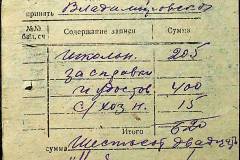 принять Владимировско
№№ бал. сч Содержание записи Сумма
Школьн. 205
за справки
и удостов 400
с/хоз н. 15
Итого 620
сумма Шестьсот двадцать